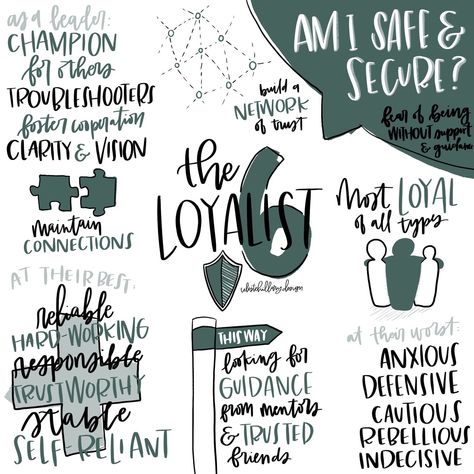 as a leader:
CHAMPION
for others
TROUBLESHOOTERS
foster cooperation
CLARITY & VISION
build a
NETWORK
of trust
AM I SAFE &
SECURE?
fear of being
WITHOUT support
& guidance
maintain
CONNECTIONS
the
LOYALIST
6
Most LOYAL
of all types
AT THEIR BEST,
reliable
HARD-WORKING
responsible
TRUSTWORTHY
stable
SELF-RELIANT
THIS WAY
looking for
GUIDANCE
from mentors
& TRUSTED
friends
at their worst:
ANXIOUS
DEFENSIVE
CAUTIOUS
REBELLIOUS
INDECISIVE